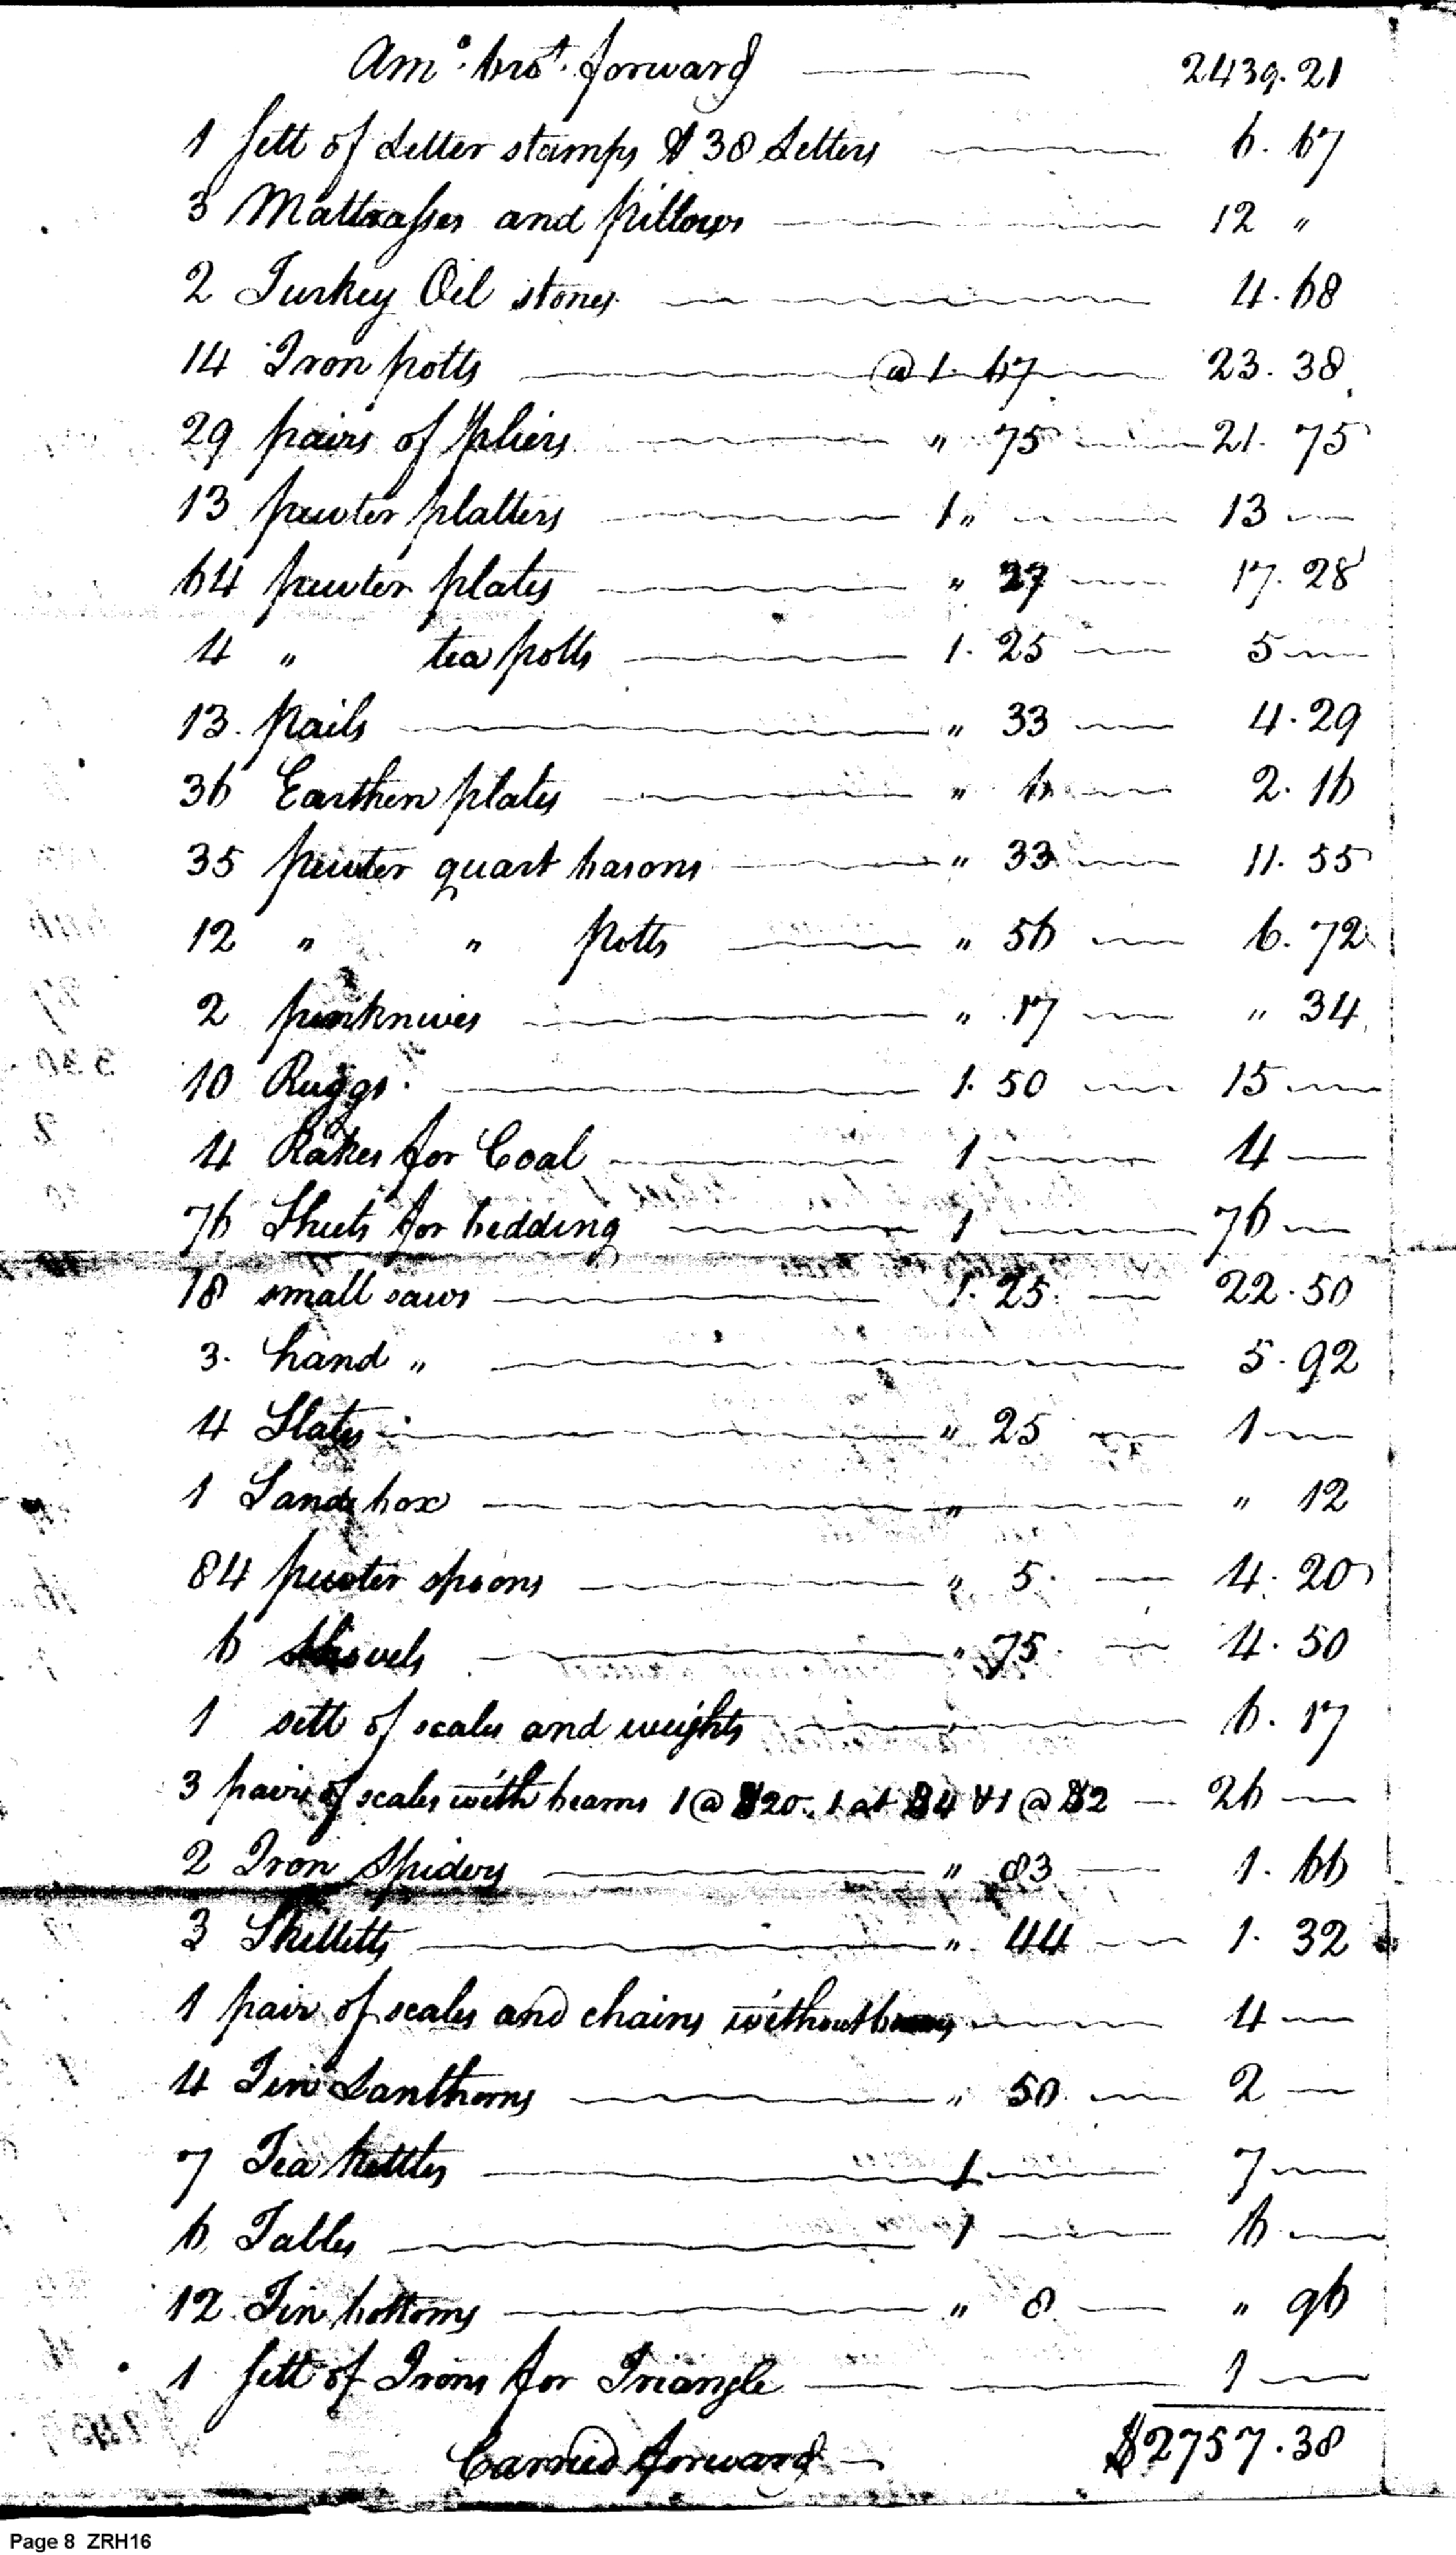 Amo. brot. forward 2439.21
1 Sett of Letter stamps & 38 Letters 6.67
3 Mattrasses and pillows 12 "
2 Turkey Oil stones 4.68
14 Iron potts @ 1.67 23.38
29 pairs of pliers " 75 21.75
13 pewter platters 1 " 13
64 pewter plates " 27 17.28
4 " tea potts 1.25 5
13 pails " 33 4.29
36 Earthen plates " 6 2.16
35 pewter quart basons " 33 11.55
12 " " potts " 56 6.72
2 penknives " 17 " 34
10 Ruggs 1.50 15
4 Rakes for Coal 1 4
76 Sheets for bedding 1 76
18 small saws 1.25 22.50
3. hand " 5.92
4 Slates " 25 1
1 Sand box " " 12
84 pewter spoons " 5 4.20
6 shovels " 75 4.50
1 sett of scales and weights 6.17
3 pairs of scales with beams 1 @ $20. 1 at $4 & 1 @ $2 26
2 Iron Spiders " 83 1.66
3 Skelletts " 44 1.32
1 pair of scales and chains without 4
4 Tin Lanthorns " 50 2
7 Tea kettles 1 7
6 Tables 1 6
12 Tin bottoms " 8 " 96
1 Sett of Irons for Triangle 1
Carried forward $2757.38
Page 8 ZRH16